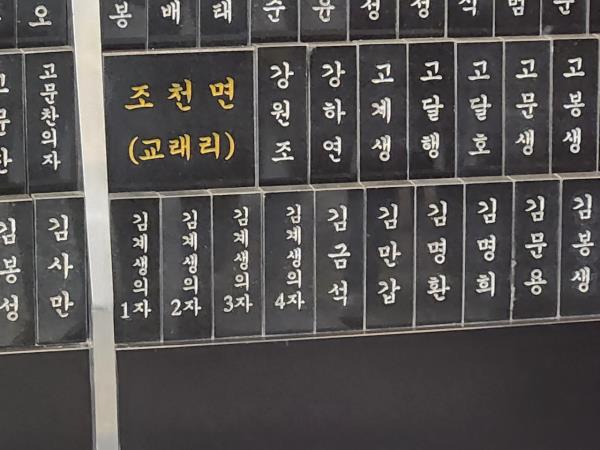 오
봉 배 태 순 윤 성 성 식 범
고문찬
고문찬의자
조천면
(교래리)
강원조
강하연
고계생
고달행
고달호
고문생
고봉생
김봉성
김사만
김계생의1자
김계생의2자
김계생의3자
김계생의4자
김금석
김만갑
김명환
김명희
김문용
김봉생